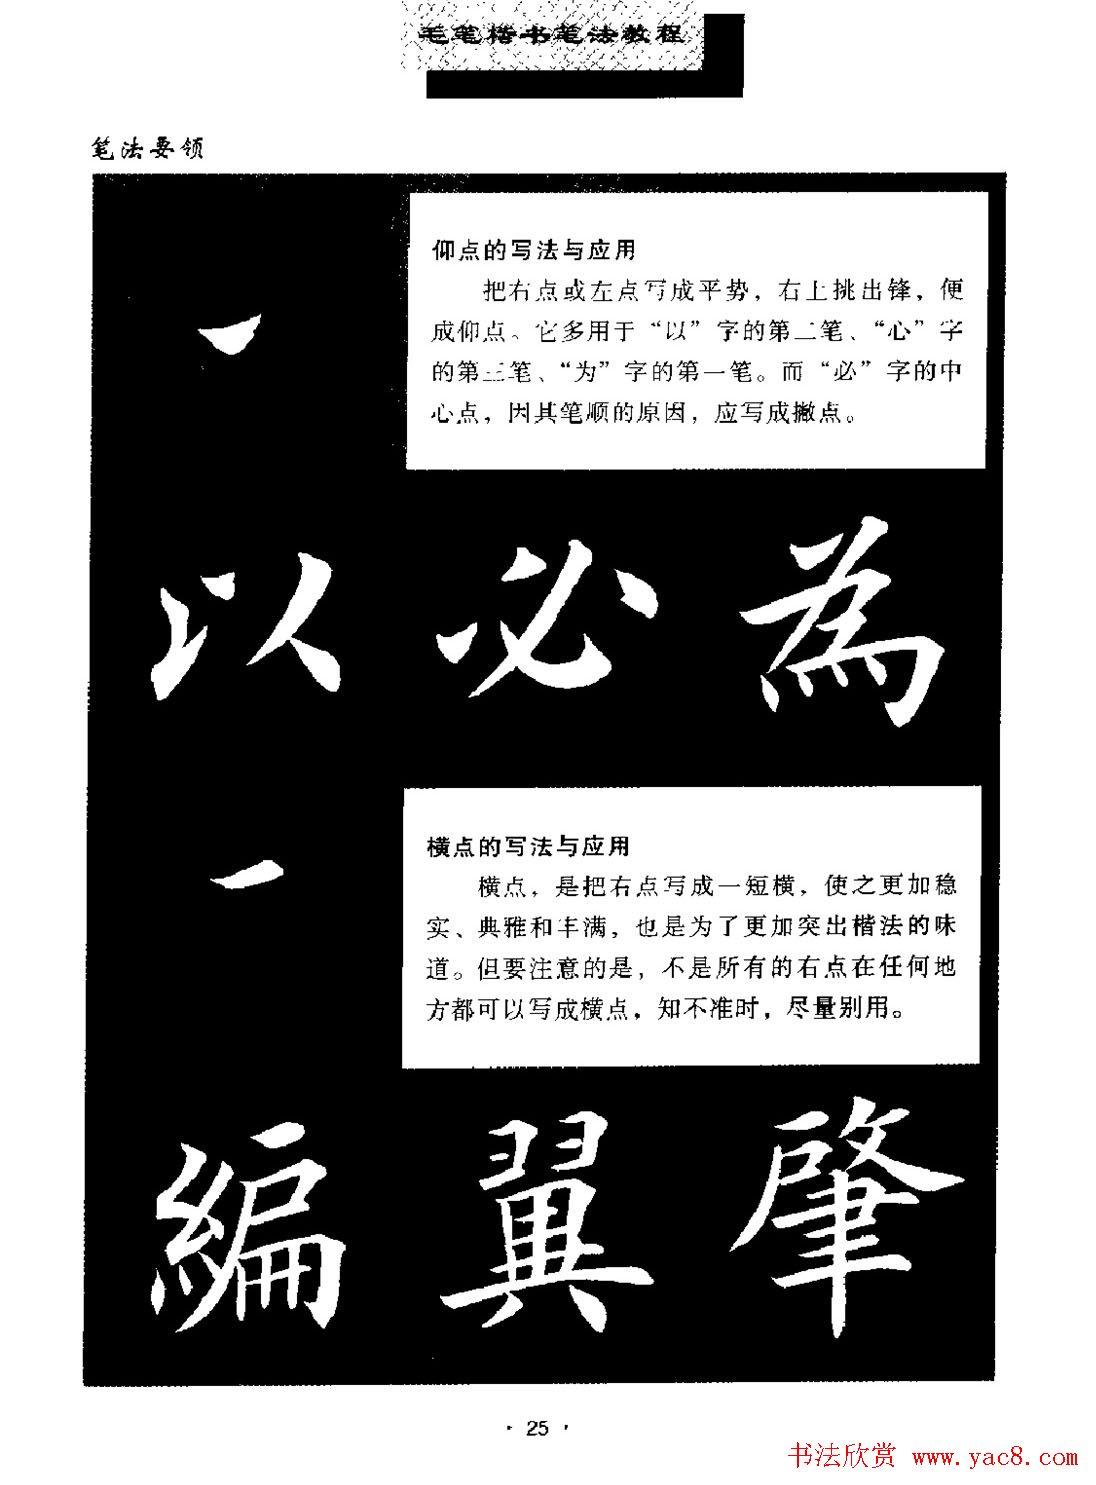 毛笔楷书笔法教程
笔法要领
仰点的写法与应用
把右点或左点写成平势，右上挑出锋，便
成仰点。它多用于“以”字的第二笔、“心”字
的第三笔、“为”字的第一笔。而“必”字的中
心点，因其笔顺的原因，应写成撇点。
以必為
横点的写法与应用
横点，是把右点写成一短横，使之更加稳
实、典雅和丰满，也是为了更加突出楷法的味
道。但要注意的是，不是所有的右点在任何地
方都可以写成横点，知不准时，尽量别用。
編翼肇
· 25 ·
书法欣赏 www.yac8.com